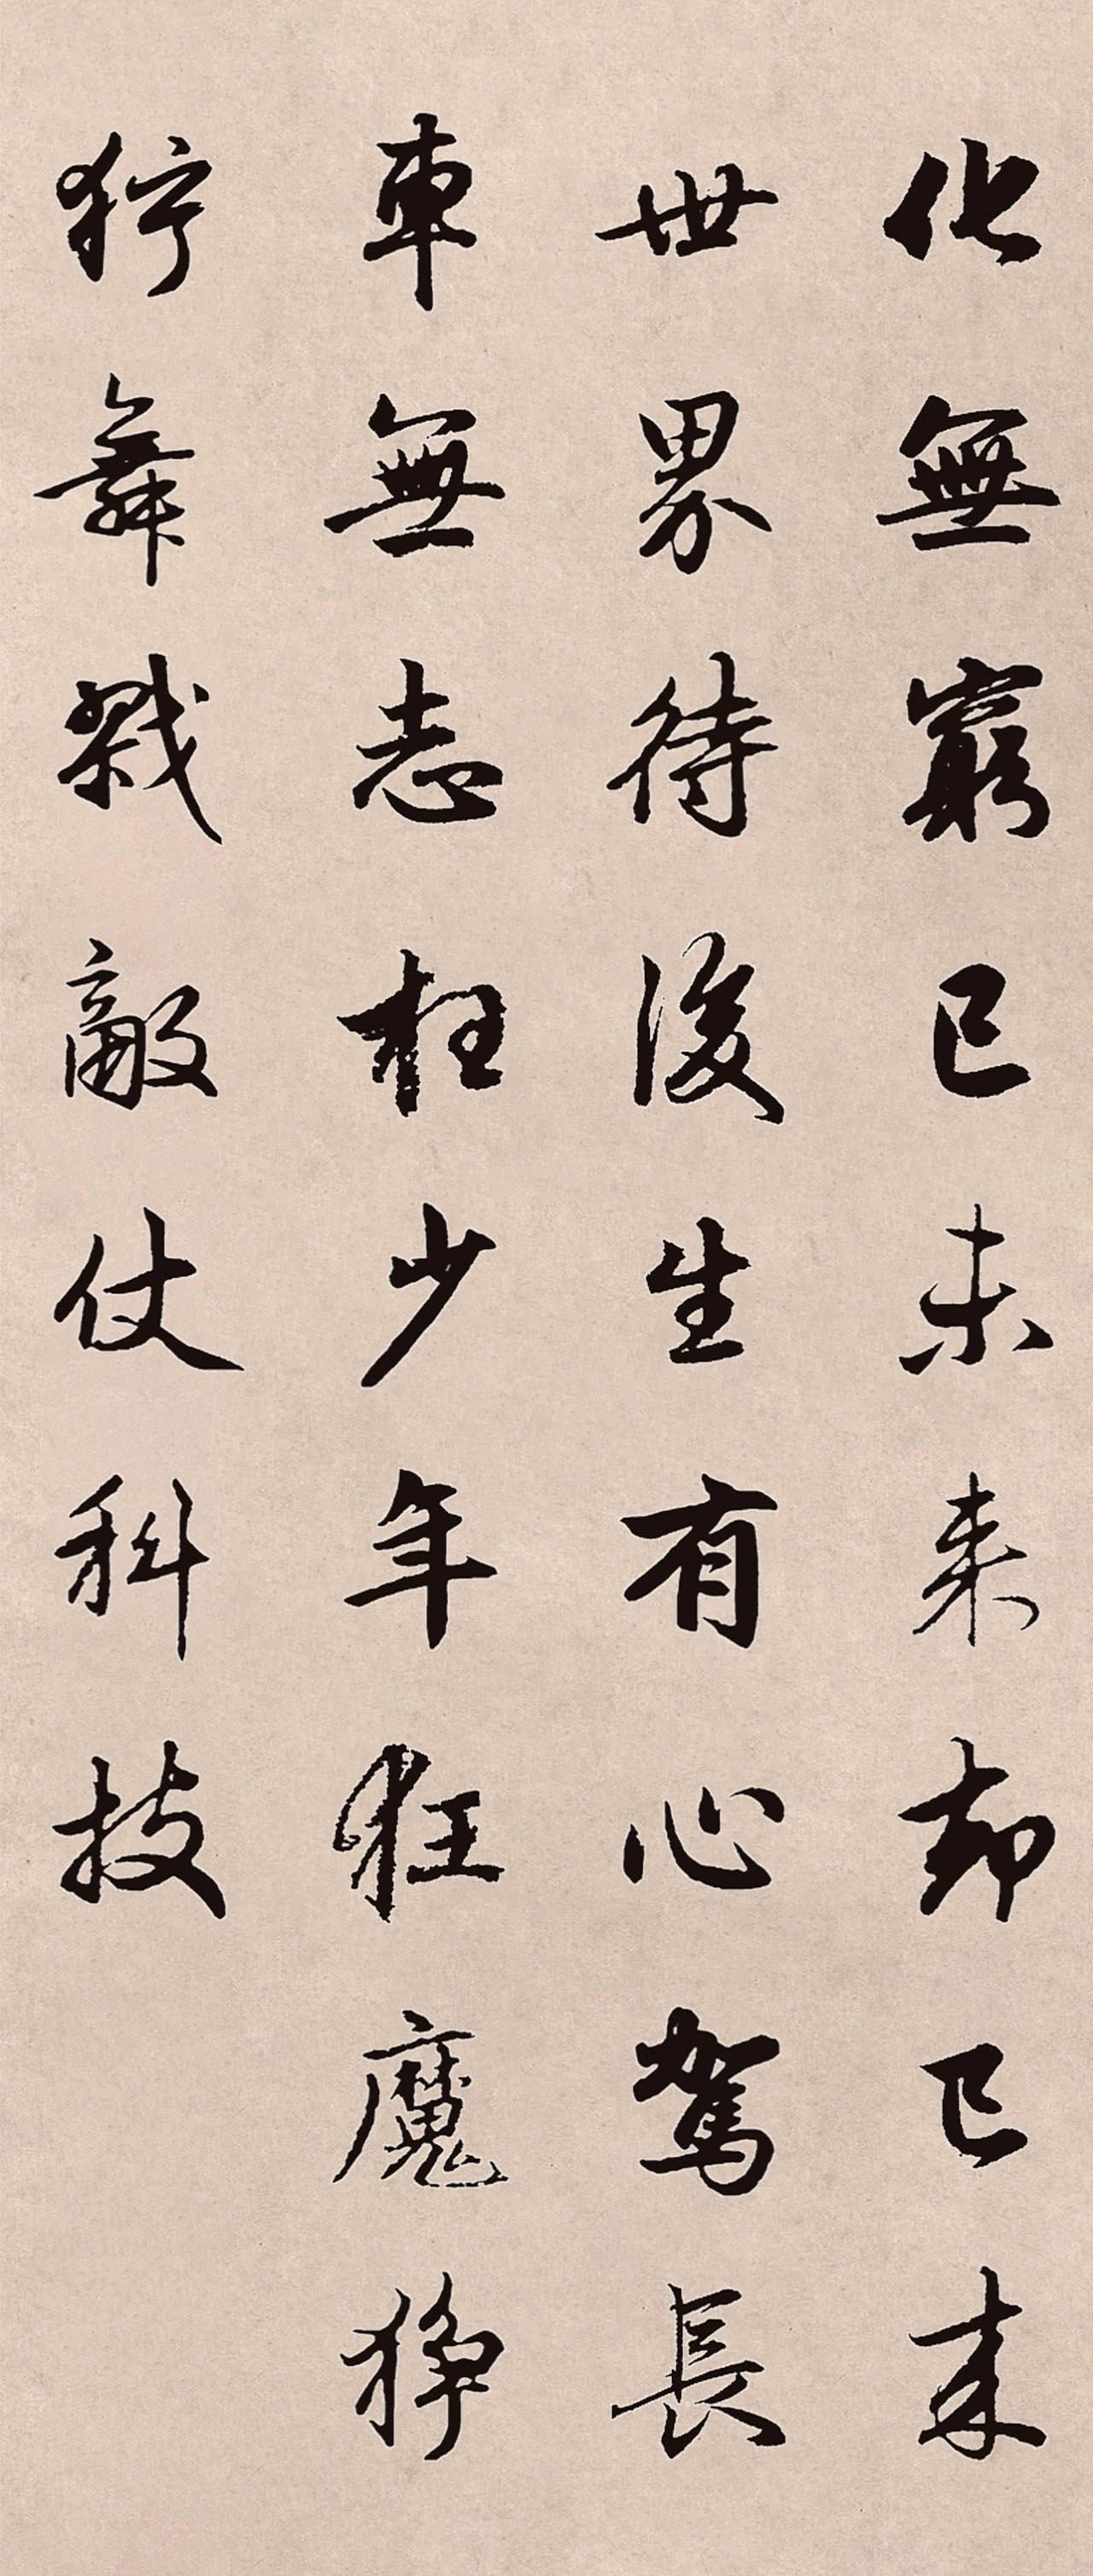 化無窮已未來却已來
世界待後生有心駕長
車無志枉少年狂魔狰
狞舞戮敵仗科技